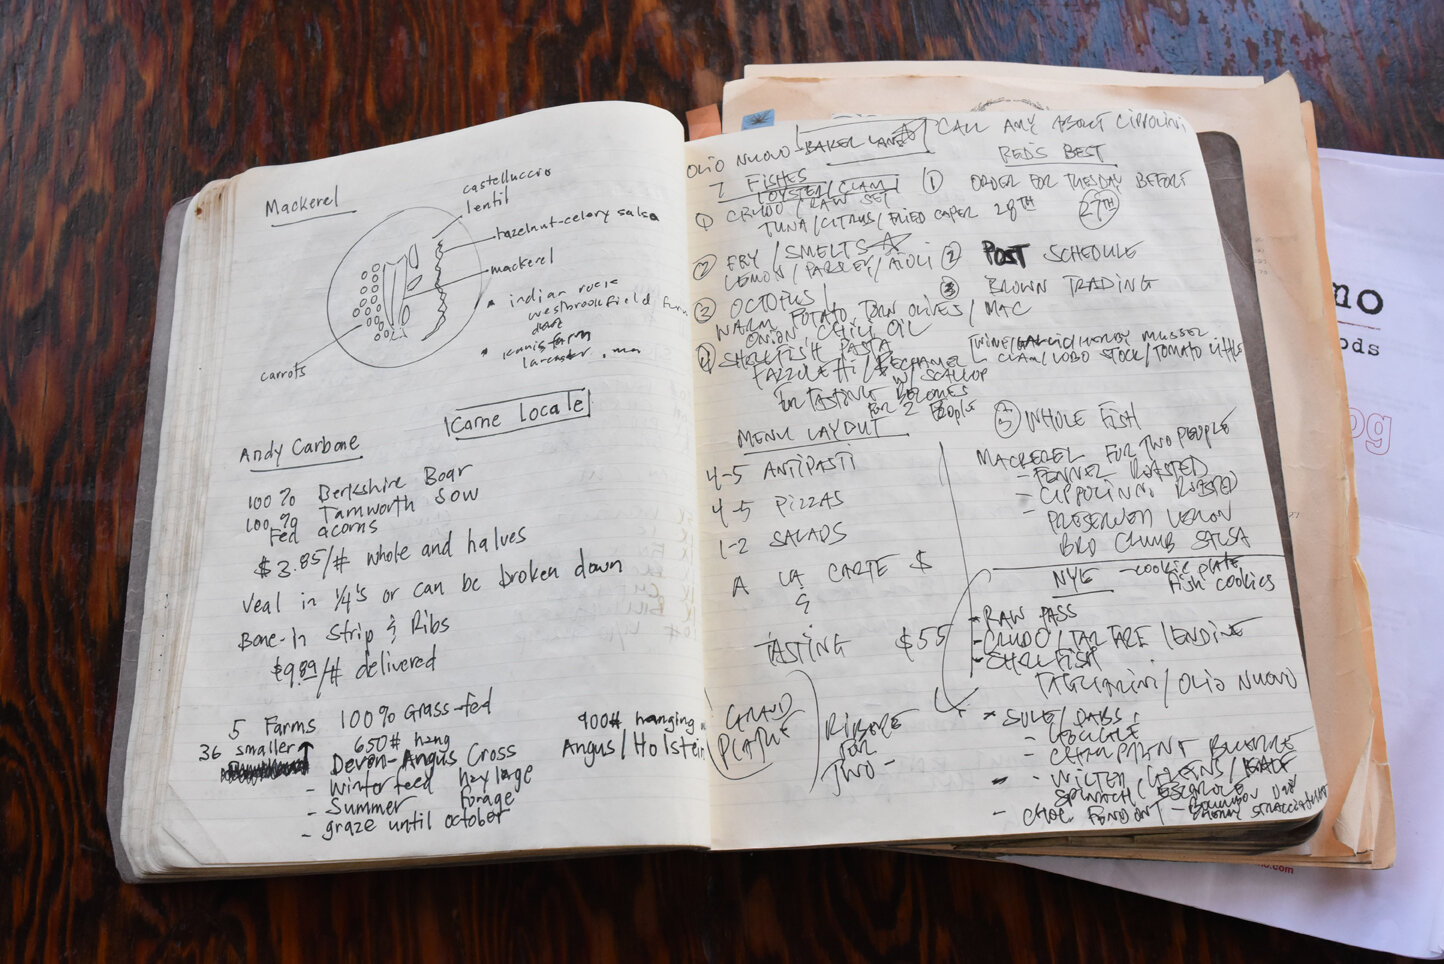 Mackerel
castelluccio
lentil
hazelnut-celery salsa
mackerel
* indian
westbrookfield farm
* farm
lancaster, ma
carrots
Carne Locale
Andy Carbone
100% Berkshire Boar
100% Tamworth Sow
Fed acorns
$3.85/# whole and halves
Veal in 1/4's or can be broken down
Bone-In Strip & Ribs
$9.89/# delivered
5 Farms 100% Grass-fed
36 smaller 650# hang
Devon-Angus Cross
- Winter feed haylage
- Summer forage
- graze until october
900# hanging
Angus/Holstein
OLIO NUOVO BAKER LANE
CALL AMY ABOUT CIPPOLINI
7 FISHES
OYSTER/CLAM
① CRUDO/RAW SET
TUNA/CITRUS/FRIED CAPER
② FRY/SMELTS
LEMON/PARSLEY/AIOLI
③ OCTOPUS/
WARM POTATO, TORN OLIVES/
ONION, CHILI OIL
④ SHELLFISH PASTA
FAZZOLETTI/BECHAMEL
W/SCALLOP
FOR TASTING BECOMES
FOR 2 PEOPLE
RED'S BEST
① ORDER FOR TUESDAY BEFORE
28TH 29TH
② POST SCHEDULE
③ BROWN TRADING
MAC
MUSSEL
CLAM/LOBO STOCK/TOMATO
⑤ WHOLE FISH
MACKEREL FOR TWO PEOPLE
- FENNEL ROASTED
- CIPPOLINNI ROASTED
PRESERVED LEMON
BRD CRUMB SALSA
MENU LAYOUT
4-5 ANTIPASTI
4-5 PIZZAS
1-2 SALADS
A LA CARTE $
&
TASTING $55
GRAND
PLATE
RIBEYE
FOR
TWO -
NYE - cookie plate
Fish cookies
- RAW PASS
- CRUDO/TARTARE/ENDIVE
- SHELLFISH
TAGLIARINI/OLIO NUOVO
* SOLE/DABS
WILTED GREENS/
SPINACH/ESCAROLE
- CHOC FONDANT -
STRACCIATELLA